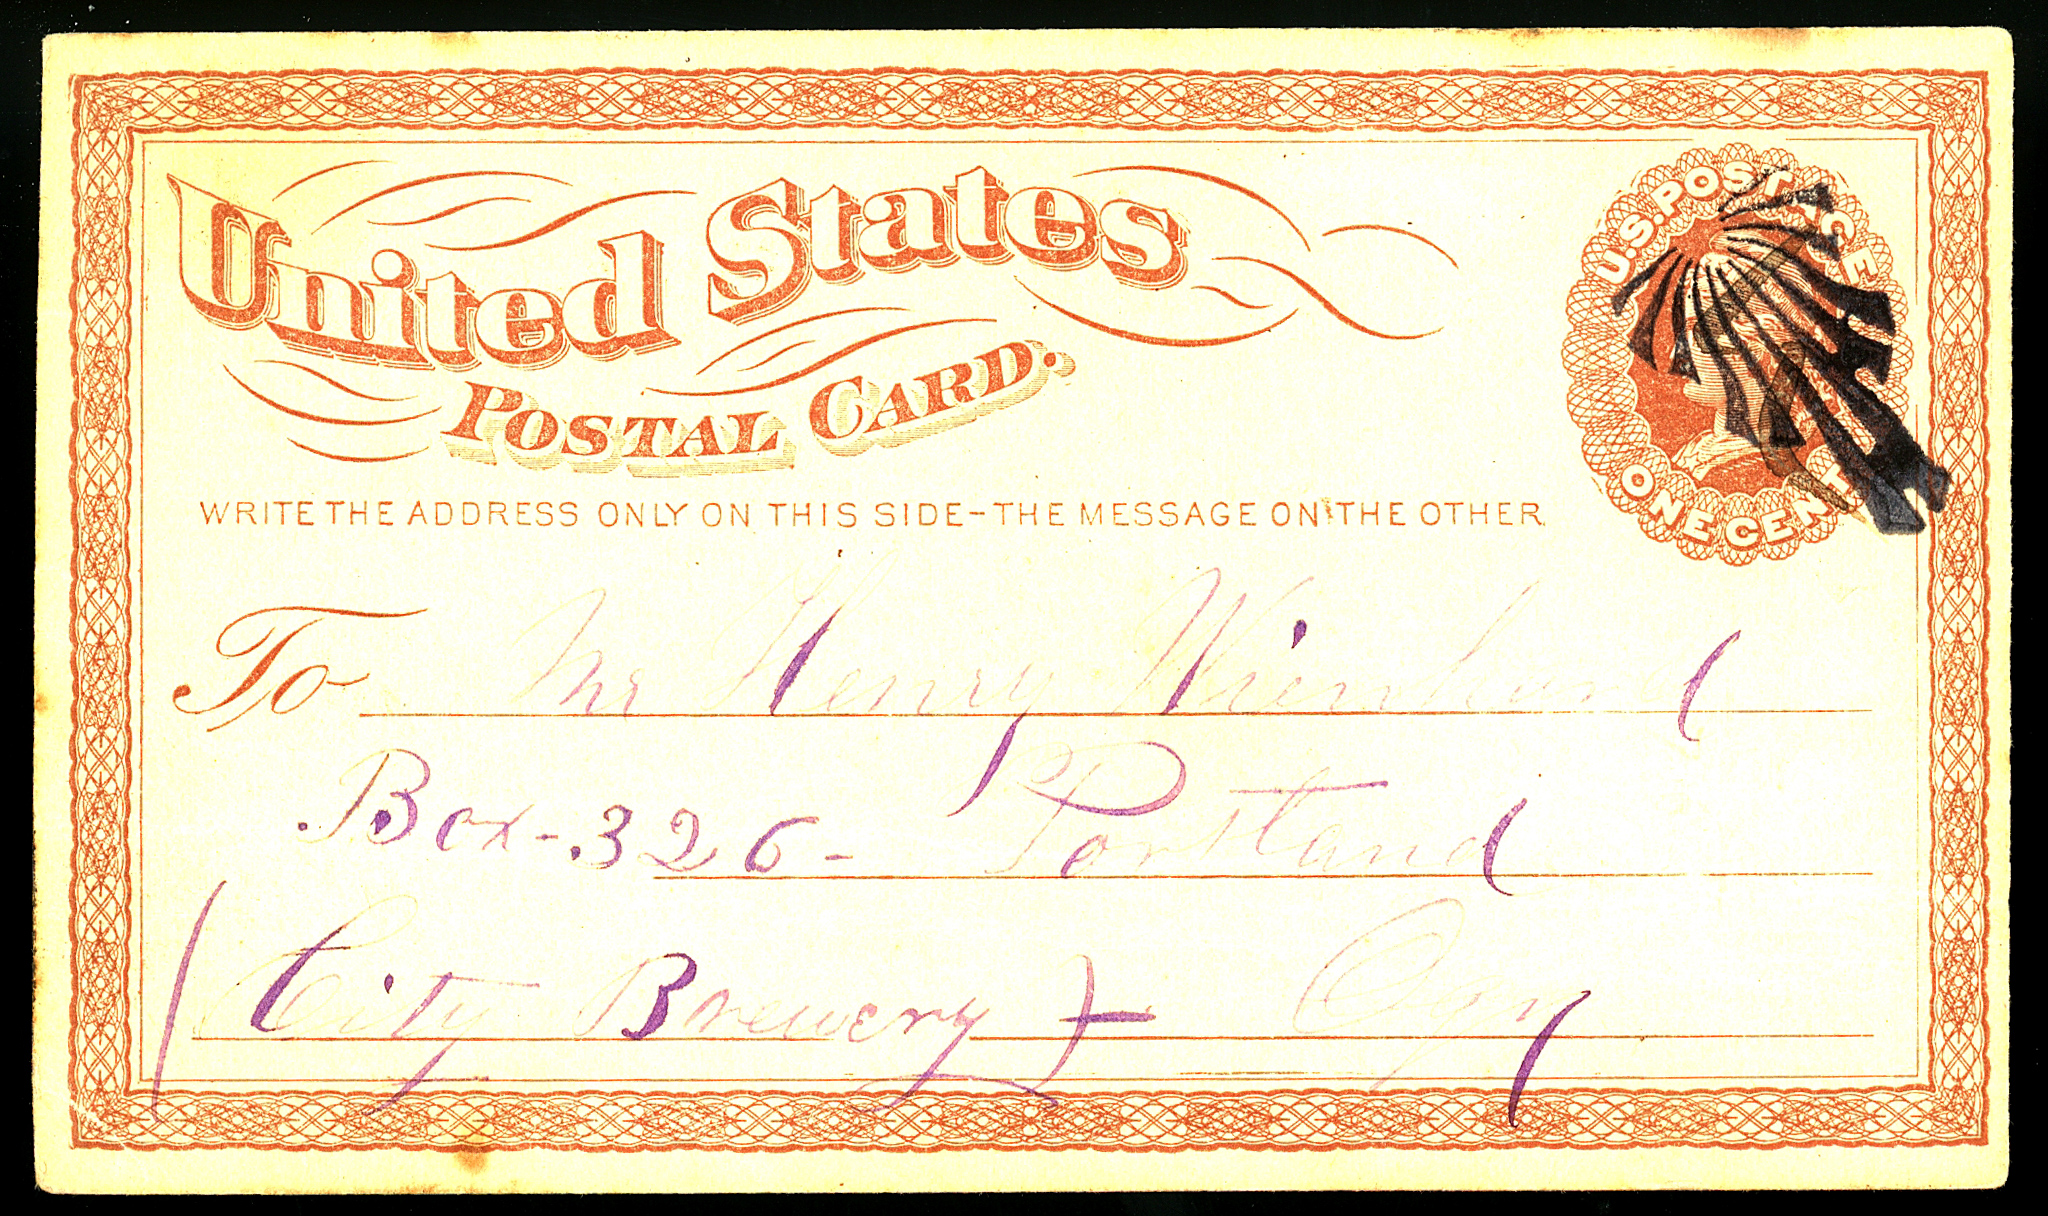 United States
POSTAL CARD.
U.S. POSTAGE
ONE CENT
WRITE THE ADDRESS ONLY ON THIS SIDE-THE MESSAGE ON THE OTHER
To Mr Henry Wienhard
Box-326- Portland
(City Brewery) Ogn